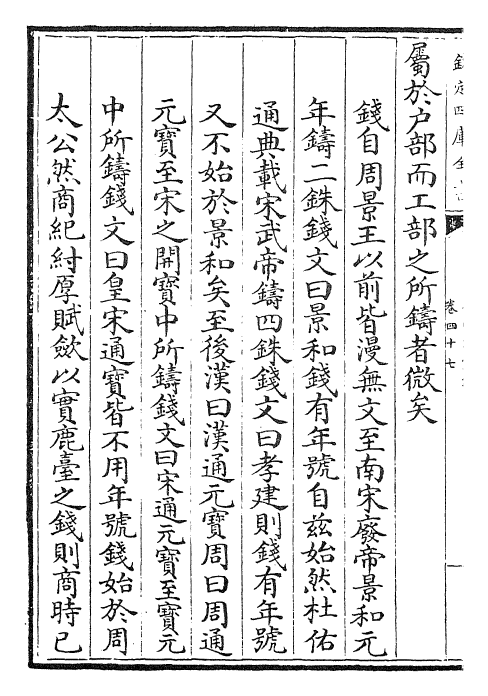 欽定四庫全書
卷四十七
屬於户部而工部之所鑄者微矣
錢自周景王以前皆漫無文至南宋廢帝景和元
年鑄二銖錢文曰景和錢有年號自兹始然杜佑
通典載宋武帝鑄四銖錢文曰孝建則錢有年號
又不始於景和矣至後漢曰漢通元寶周曰周通
元寶至宋之開寶中所鑄錢文曰宋通元寶至寶元
中所鑄錢文曰皇宋通寶皆不用年號錢始於周
太公然商紀紂厚賦斂以實鹿臺之錢則商時已